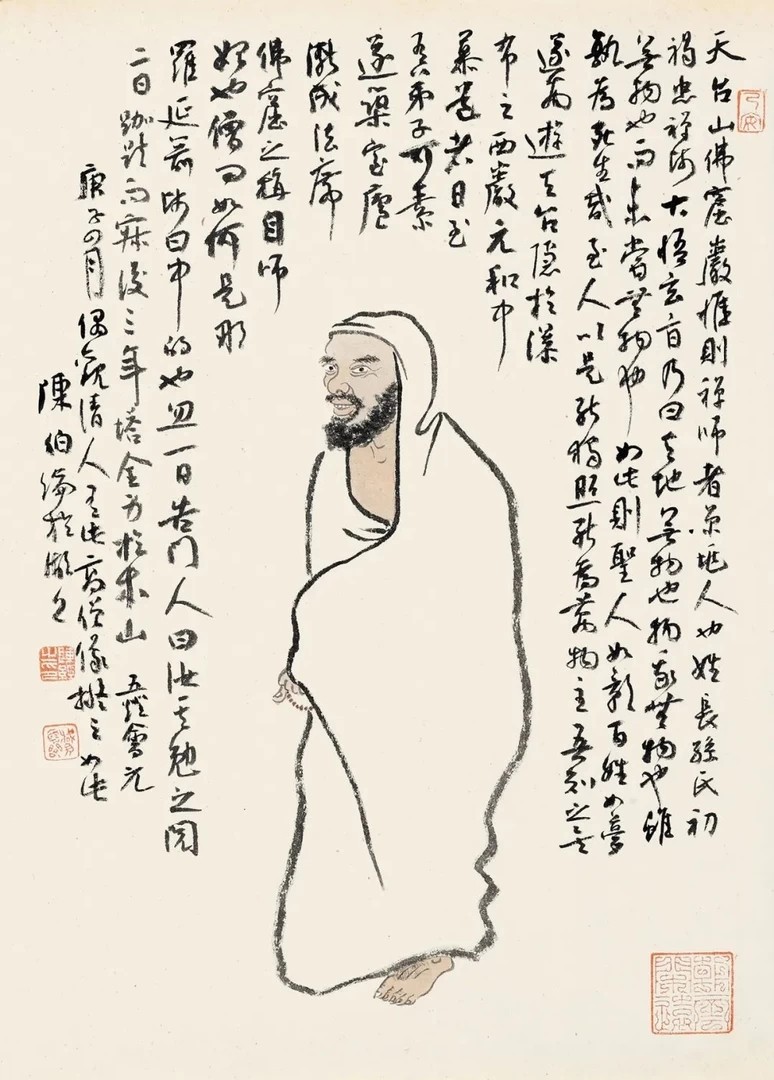 天台山佛窟巖惟則禪師者京兆人也姓長孫氏初
謁忠禪師大悟玄旨乃曰天地無物也物我無物也雖
無物也而未嘗無物也如此則聖人如影百姓如夢
孰為死生哉至人以是能獨照能為萬物主吾知之矣
遂南遊天台隱於瀑
布之西巖元和中
慕道者日至
有弟子可素
遂築室廬
漸成法席
佛窟之稱自師
始也僧問如何是那
羅延箭師曰中的也忽一日告門人曰汝其勉之閱
二日跏趺而寂後三年塔全身於本山 五燈會元
庚子四月偶觀清人有此高僧像擬之如此
陳伯於